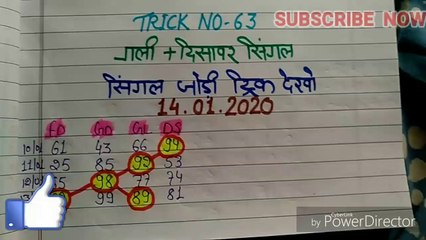 TRICK NO-63
SUBSCRIBE NOW
गली + दिसावर सिंगल
सिंगल जोड़ी ट्रिक देखो
14.01.2020
FD GD GL DS
10/01 61 43 66 99
11/01 25 85 92 53
12/01 55 98 77 74
99 89 81
by PowerDirector